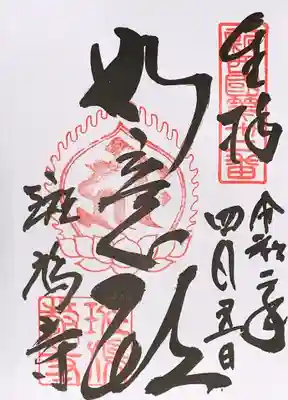 奉拝
令和二年
四月五日
如意殿
斑鳩寺